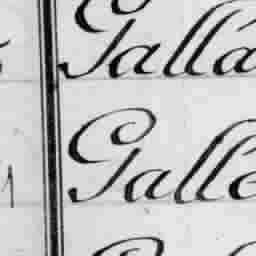 Galla
Galle